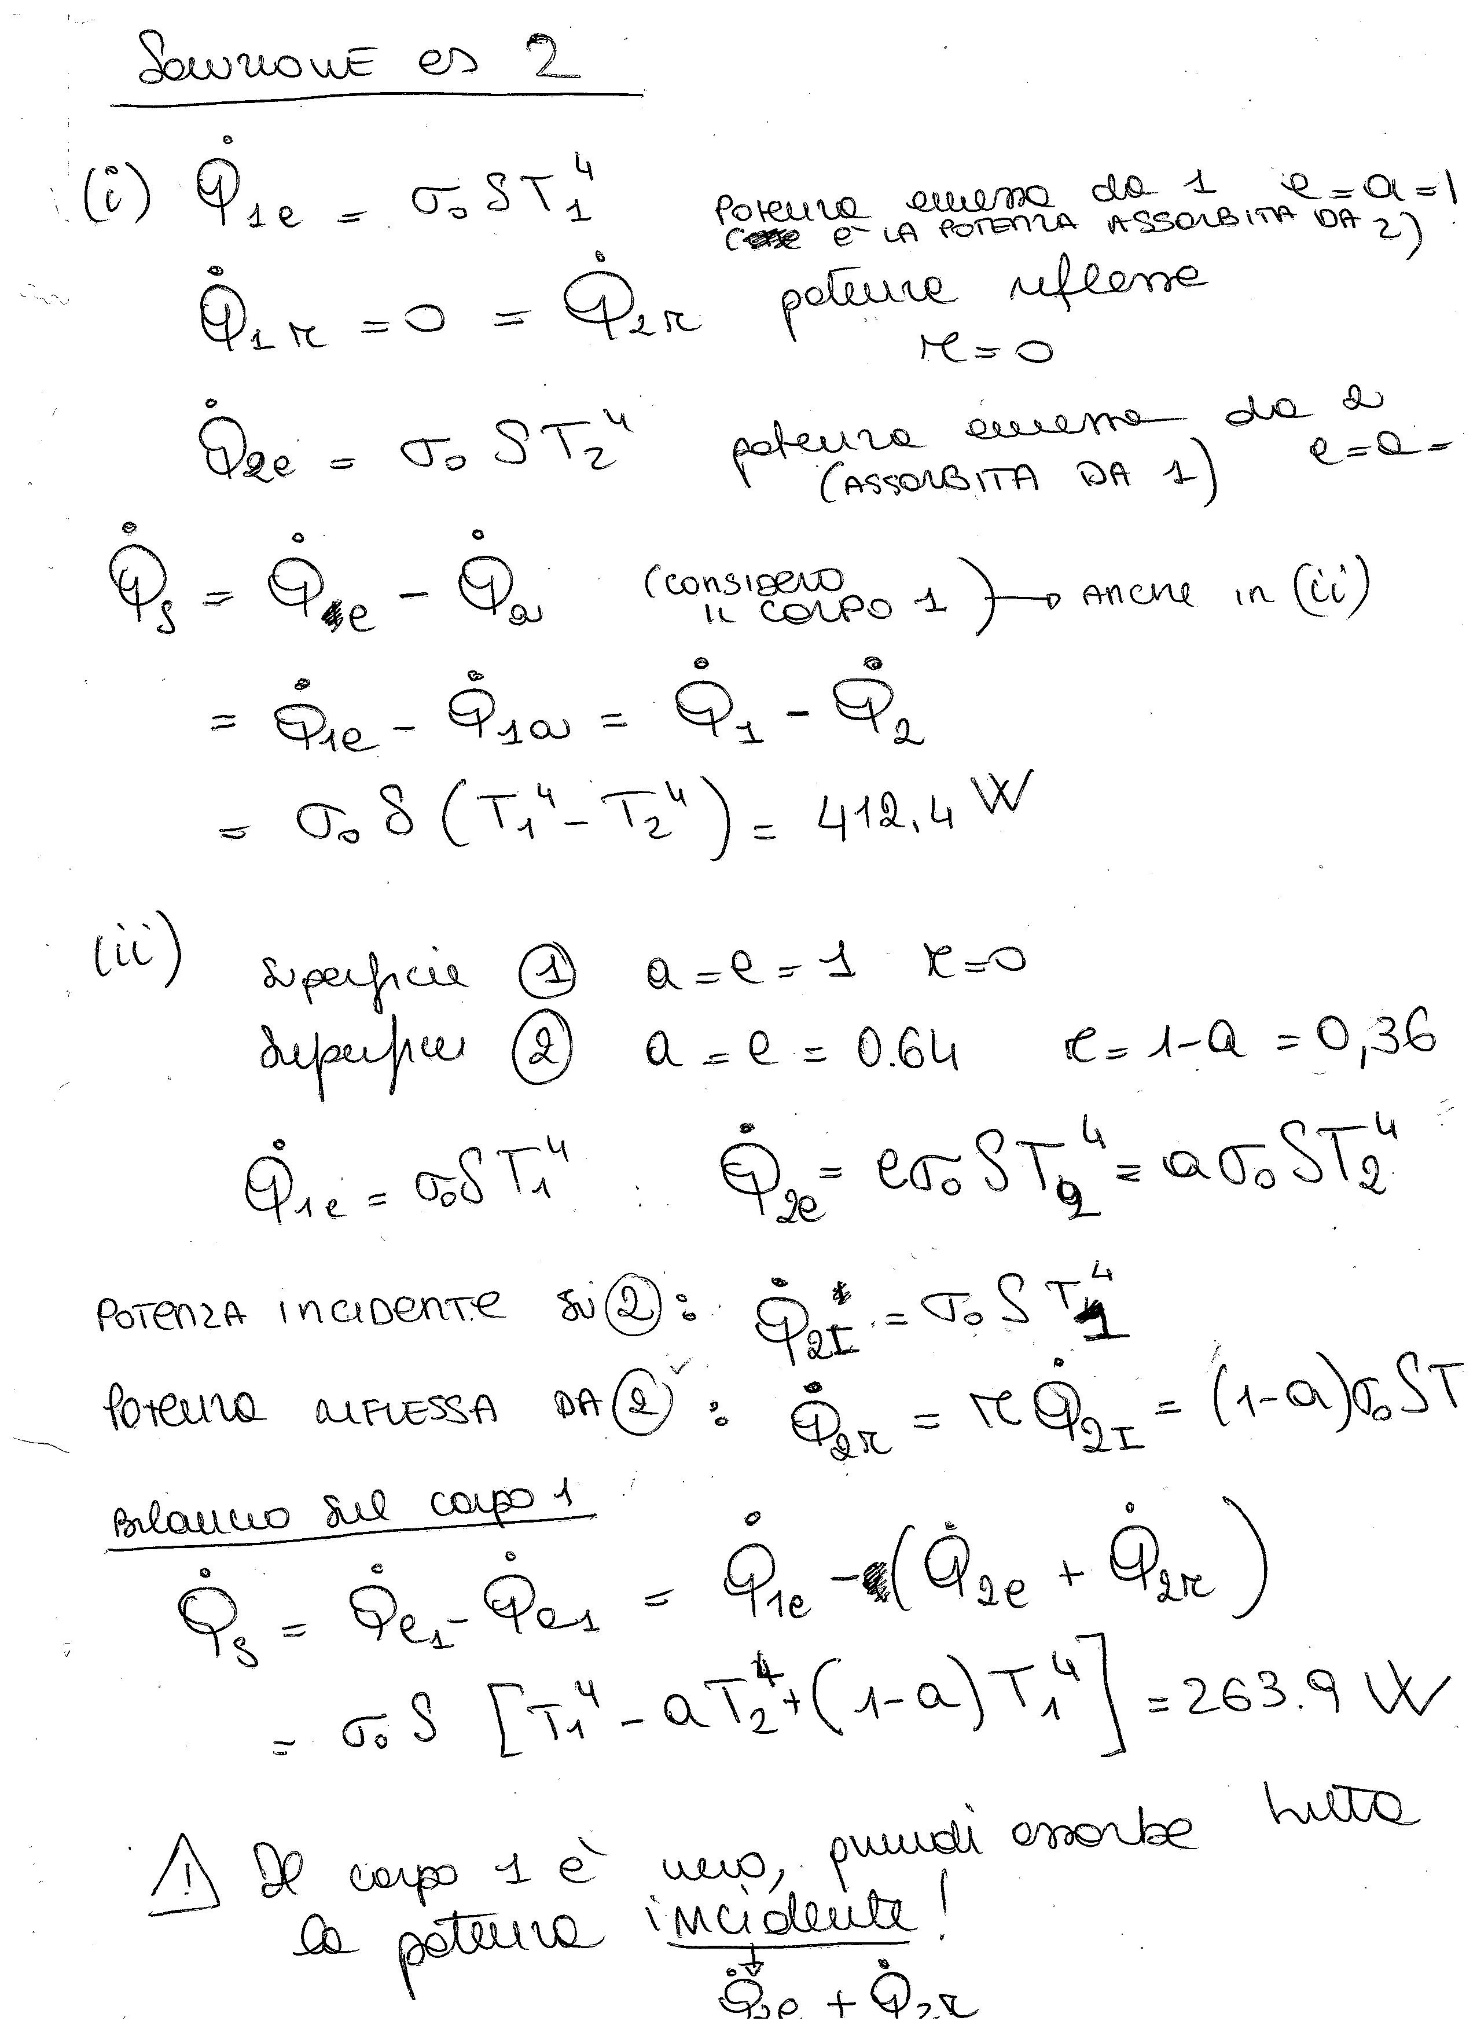 SOLUZIONE es 2
(i) Q̇1e = σ0 S T1^4 Potenza emessa da 1 e=a=1
(è LA POTENZA ASSORBITA DA 2)
Q̇1r = 0 = Q̇2r potenze riflesse
r=0
Q̇2e = σ0 S T2^4 potenza emessa da 2
(ASSORBITA DA 1) e=a=
Q̇s = Q̇e - Q̇a (CONSIDERO IL CORPO 1) → ANCHE in (ii)
= Q̇1e - Q̇1a = Q̇1 - Q̇2
= σ0 S (T1^4 - T2^4) = 412,4 W
(ii) superficie ① a=e=1 r=0
superficie ② a=e=0.64 r=1-a=0,36
Q̇1e = σ0 S T1^4 Q̇2e = eσ0 S T2^4 = aσ0 S T2^4
POTENZA INCIDENTE su ②: Q̇2I = σ0 S T1^4
Potenza RIFLESSA DA ②: Q̇2r = r Q̇2I = (1-a)σ0 S T
Bilancio sul corpo 1
Q̇s = Q̇e1 - Q̇a1 = Q̇1e - (Q̇2e + Q̇2r)
= σ0 S [T1^4 - aT2^4 + (1-a)T1^4] = 263.9 W
⚠ Il corpo 1 è nero, quindi assorbe tutta
la potenza incidente!
↓
Q̇2e + Q̇2r